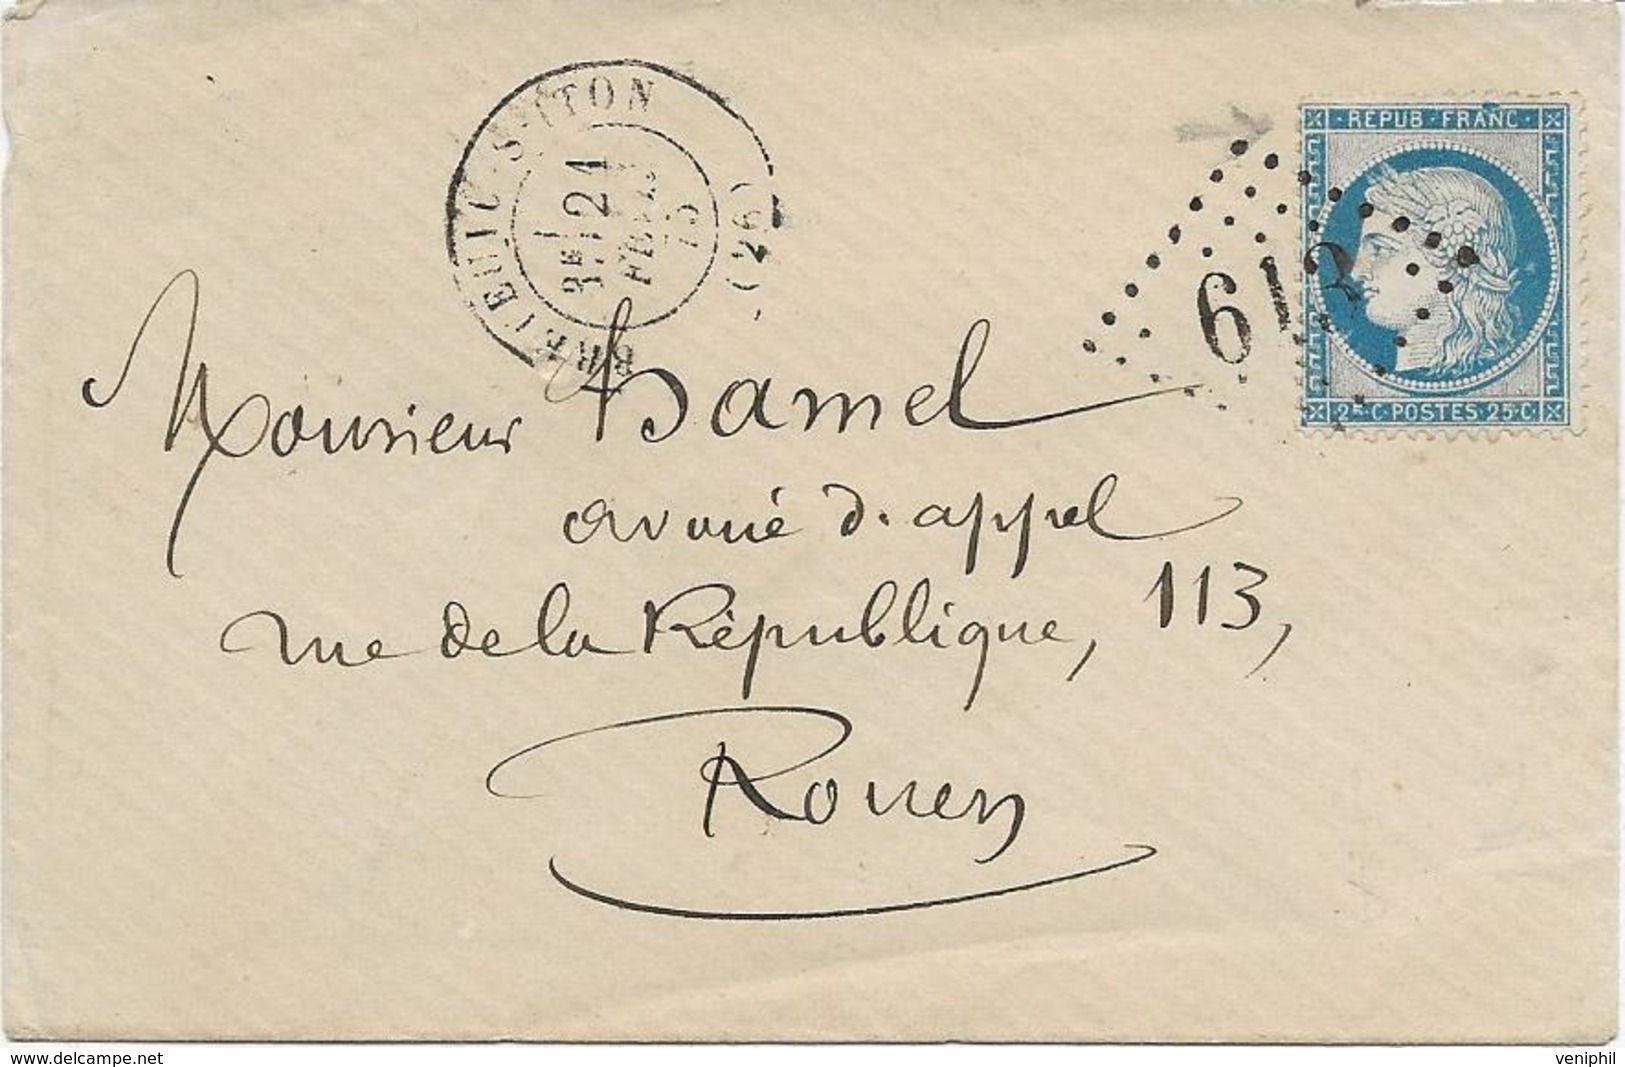 BRETEUIL-S-ITON
3E
21
FEVR
75
(26)
REPUB·FRANC·
613
25·C·POSTES·25·C
Monsieur Hamel
avoué d'appel
rue de la République, 113,
Rouen
www.delcampe.net
veniphil